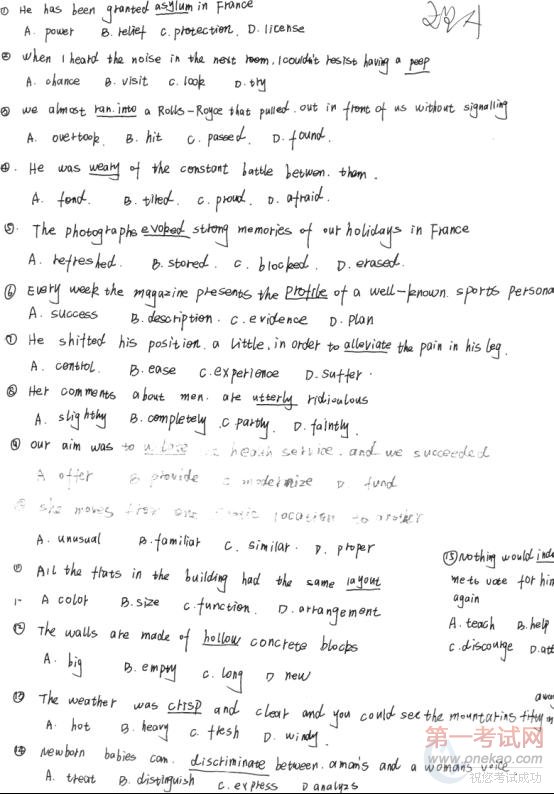 ① He has been granted asylum in France
A. power B. relief C. protection. D. license
② when I heard the noise in the next room, I couldn't resist having a peep
A. chance B. visit C. look D. try
③ we almost ran into a Rolls-Royce that pulled out in front of us without signalling
A. overtook. B. hit C. passed. D. found.
④. He was weary of the constant battle between them.
A. fond. B. tired. C. proud. D. afraid.
⑤. The photographs evoked strong memories of our holidays in France
A. refreshed. B. stored. C. blocked. D. erased.
⑥ Every week the magazine presents the profile of a well-known sports persona
A. success B. description. C. evidence D. plan
⑦ He shifted his position a little, in order to alleviate the pain in his leg.
A. control. B. ease C. experience D. suffer.
⑧ Her comments about men are utterly ridiculous
A. slighthy B. completely. C partly. D. faintly.
⑨ our aim was to health service. and we succeeded
A offer B provide C modernize D fund
she moves from one location to another
A. unusual B. familiar C. similar. D. proper
⑪ All the flats in the building had the same layout
A color B. size C. function. D. arrangement
⑫ The walls are made of hollow concrete blocks
A. big B. empty C. long D new
⑬ The weather was crisp and clear and you could see the mountains fifty
away
A. hot B. heavy C. fresh D. windy.
⑭ Newborn babies can discriminate between a man's and a womans voice
A. treat B. distinguish C. express D analyzs
⑮ Nothing would ind
me to vote for him
again
A. teach B. help
C. discourge D. att
第一考试网
www.onekao.com
祝您考试成功